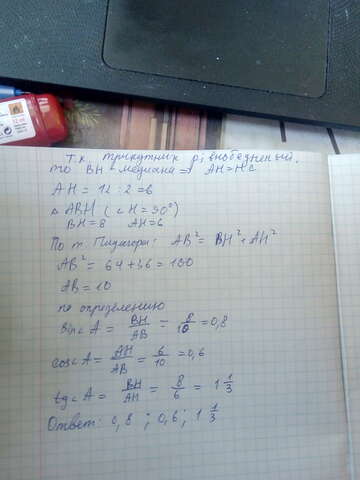 Т.к трикутник рівнобедрений,
то BH - медиана => AH=HC
AH = 12 : 2 = 6
△ ABH ( ∠ H = 90°)
BH = 8 AH = 6
По т. Пифагора: AB² = BH² + AH²
AB² = 64 + 36 = 100
AB = 10
по определению
sin∠A = BH/AB = 8/10 = 0,8
cos∠A = AH/AB = 6/10 = 0,6
tg∠A = BH/AH = 8/6 = 1 1/3
Ответ: 0,8 ; 0,6 ; 1 1/3